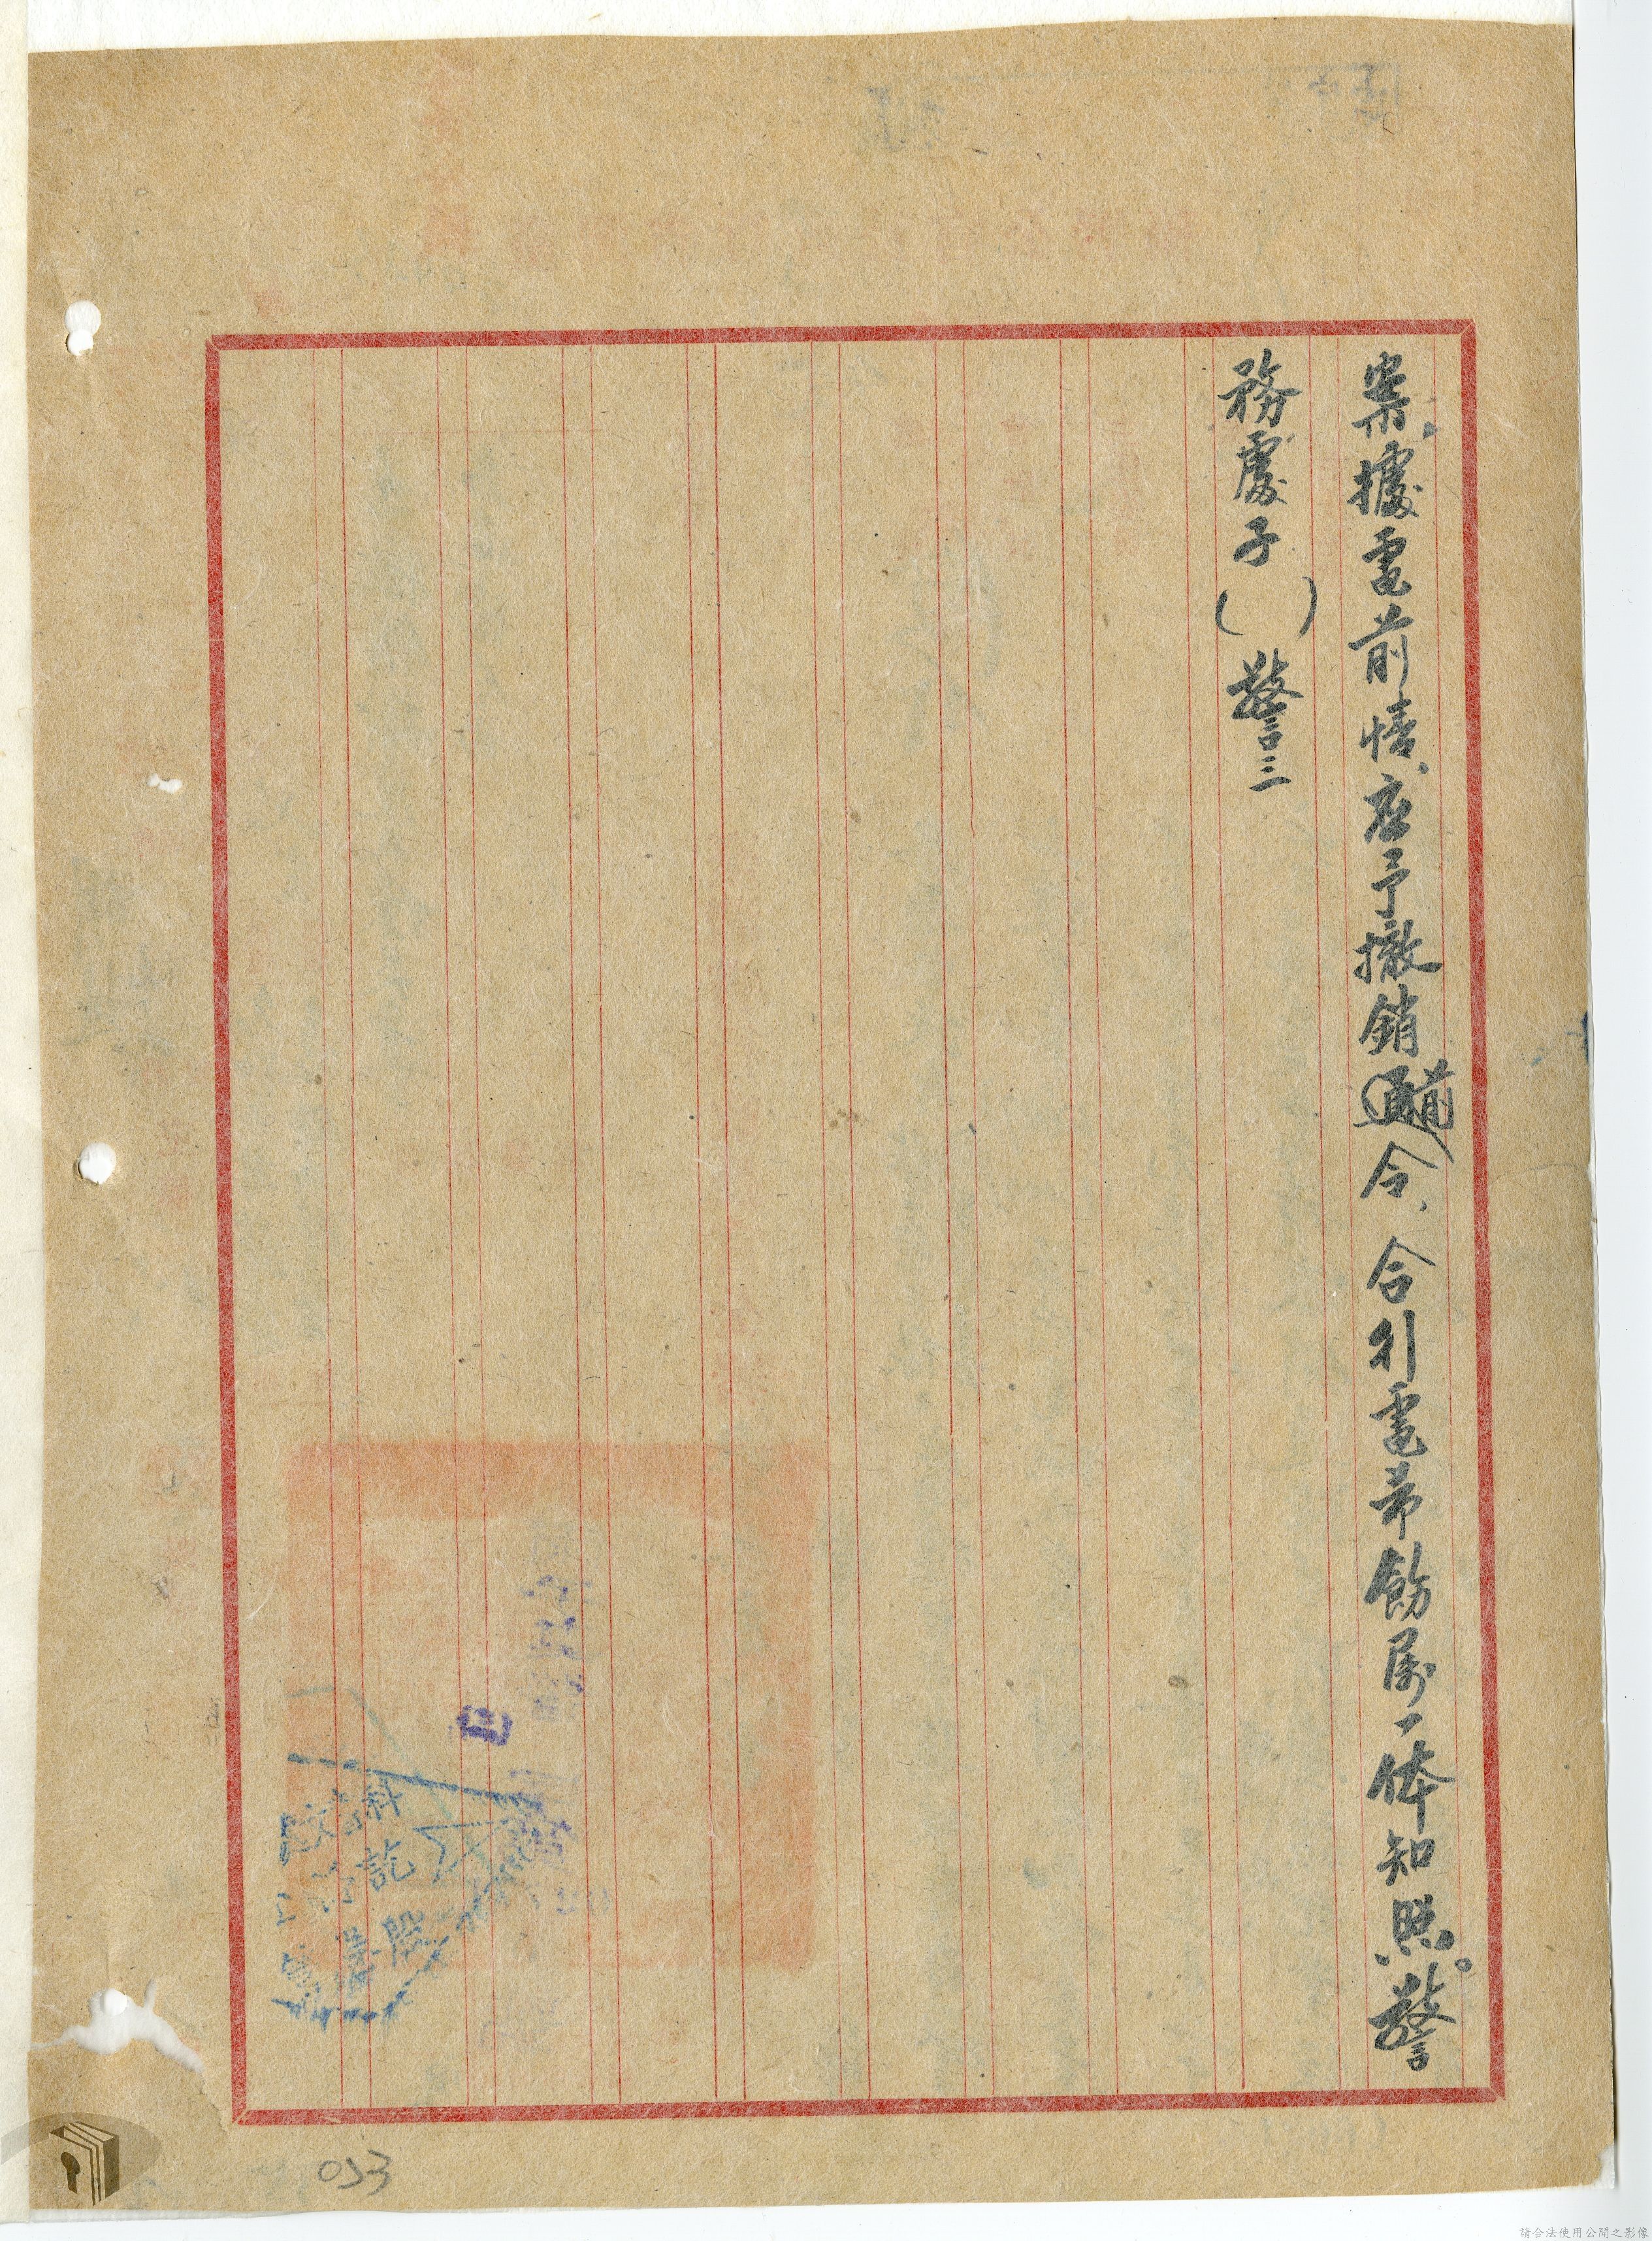 案。據電前情、應予撤銷通前令、合行電希飭屬一体知照。警
務處子( )警三
科
訖
股
053
請合法使用公開之影像